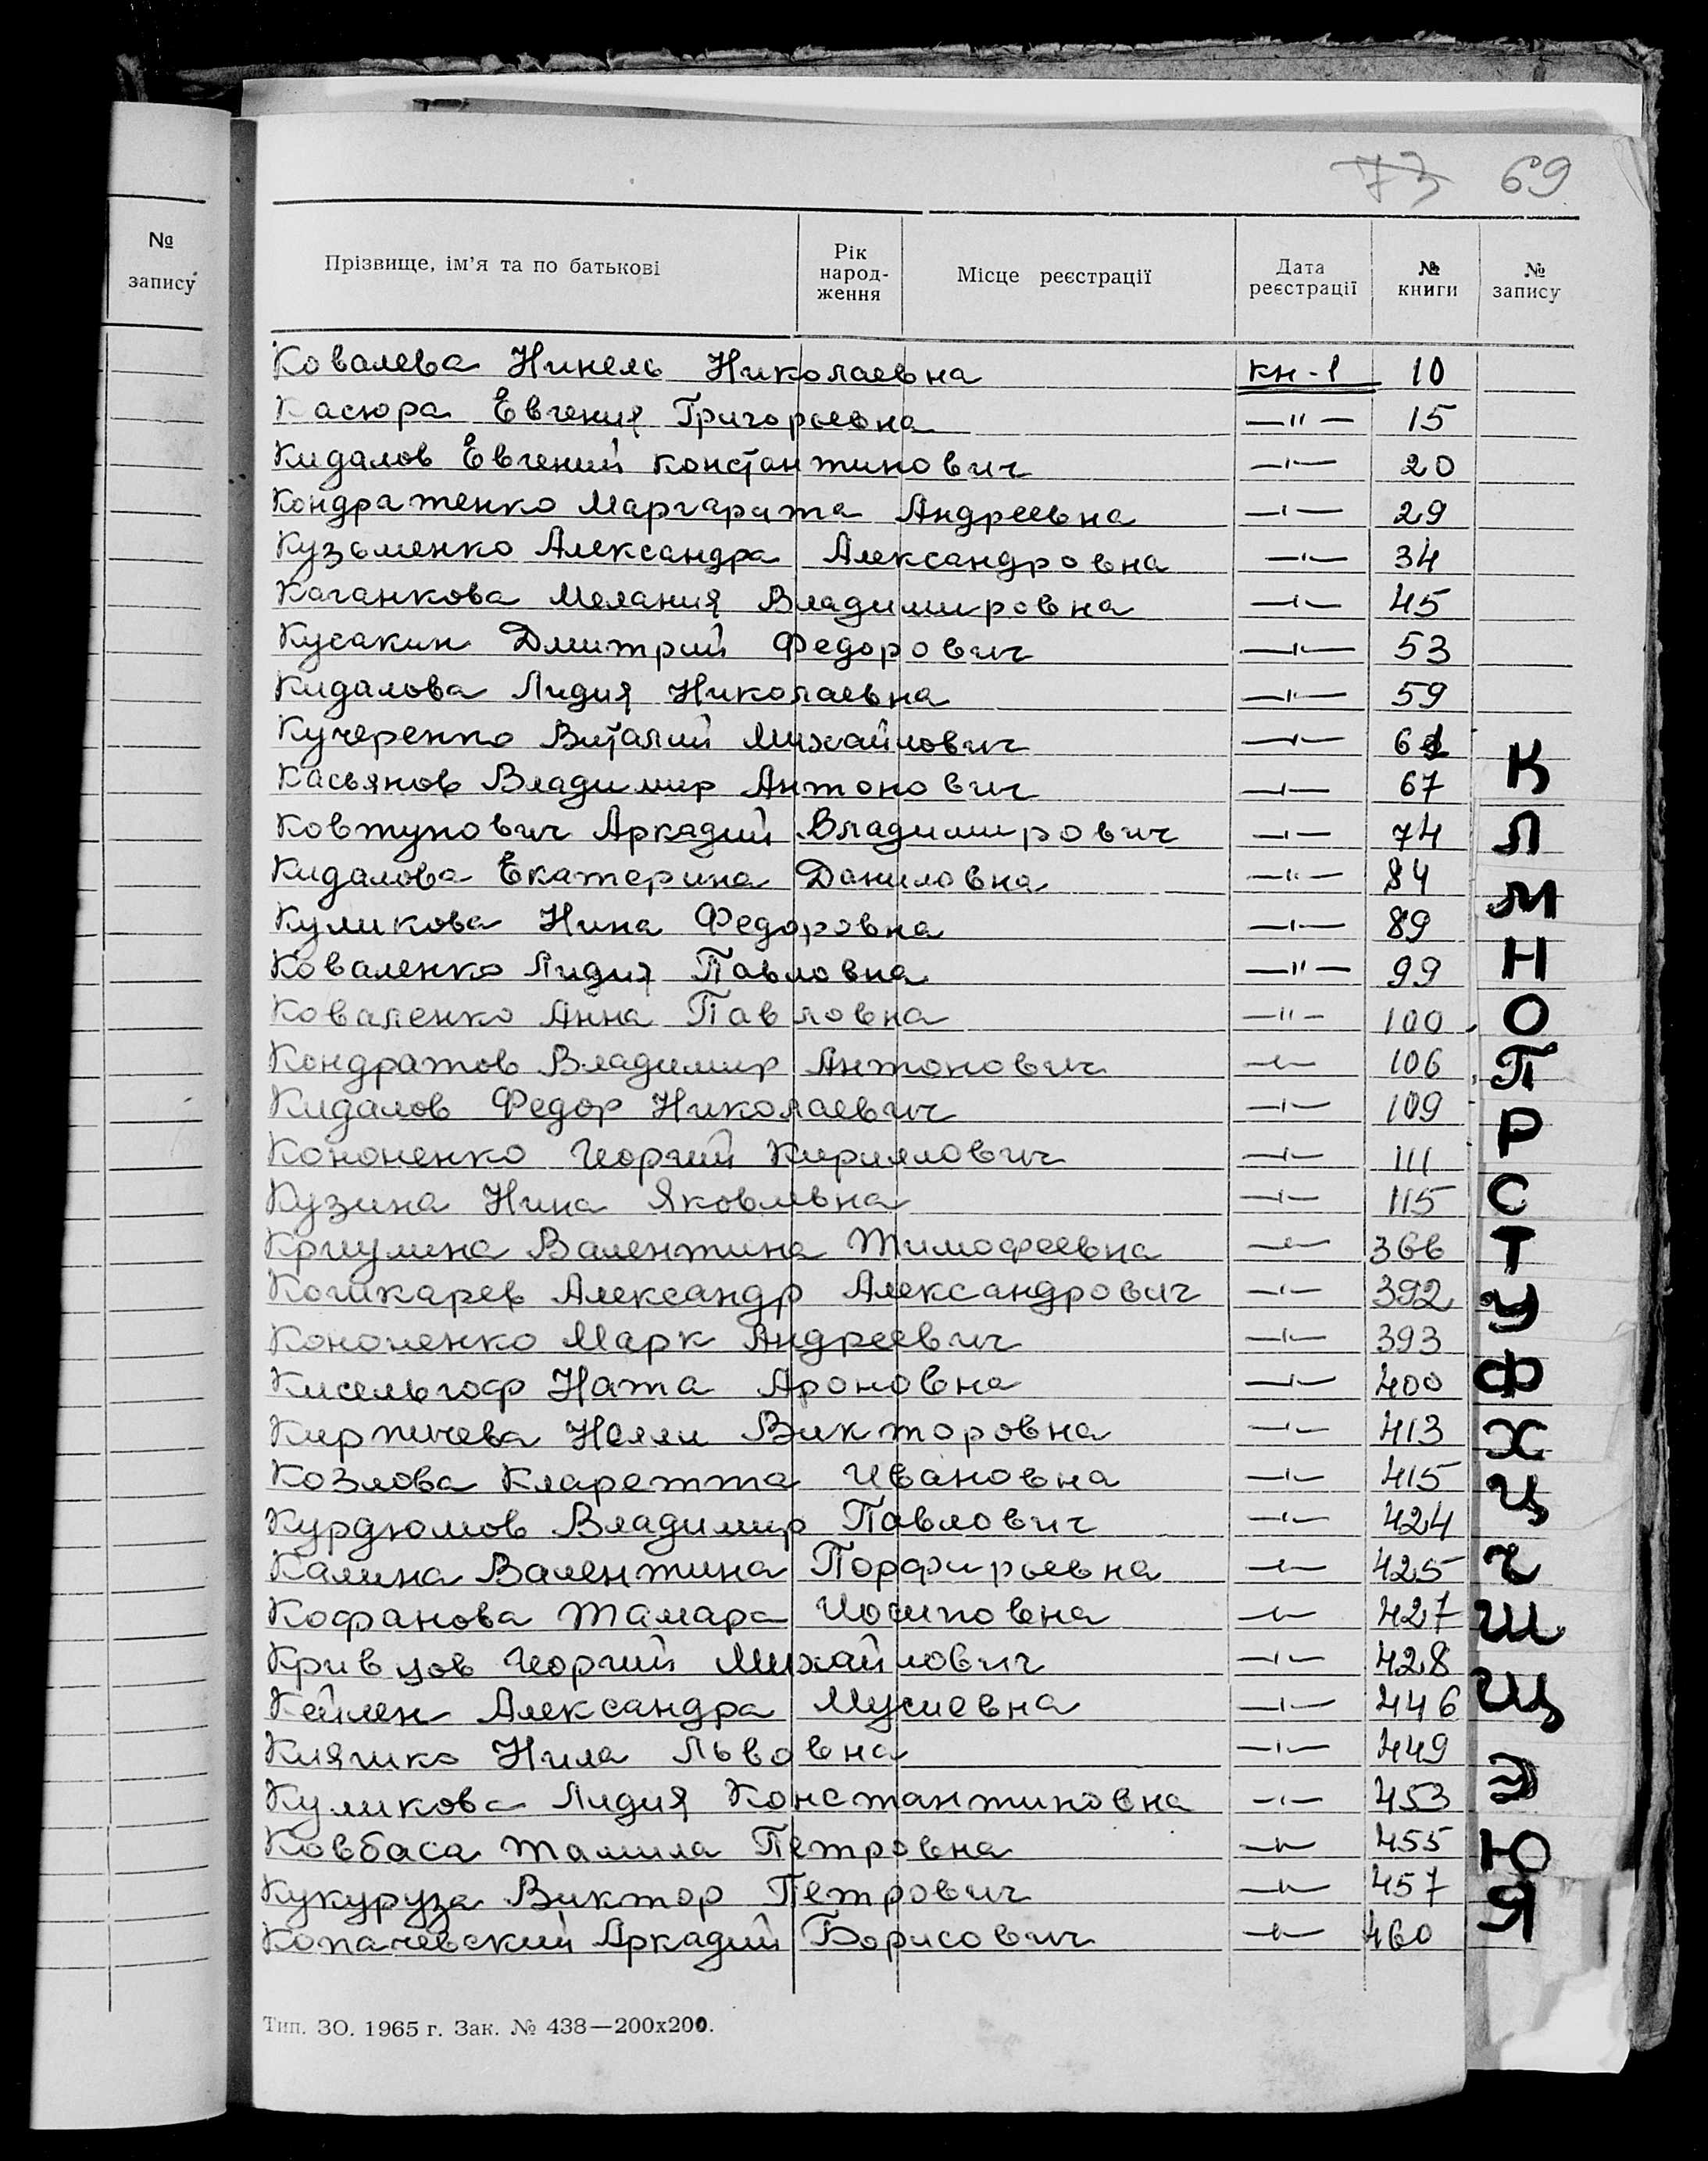 73 69
№ запису
Прізвище, ім'я та по батькові Рік народ-ження Місце реєстрації Дата реєстрації № книги № запису
Ковалева Нинель Николаевна кн-1 10
Касюра Евгения Григорьевна —"— 15
Кидалов Евгений константинович —"— 20
Кондратенко Маргарита Андреевна —"— 29
Кузьменко Александра Александровна —"— 34
Каганкова Мелания Владимировна —"— 45
Кусакин Дмитрий Федорович —"— 53
Кидалова Лидия Николаевна —"— 59
Кучеренко Виталий Михайлович —"— 61
Касьянов Владимир Антонович —"— 67
Ковтунович Аркадий Владимирович —"— 74
Кидалова Екатерина Даниловна —"— 84
Куликова Нина Федоровна —"— 89
Коваленко Лидия Павловна —"— 99
Коваленко Анна Павловна —"— 100
Кондратов Владимир Антонович —"— 106
Кидалов Федор Николаевич —"— 109
Кононенко Георгий Кириллович —"— 111
Кузина Нина Яковлевна —"— 115
Криулина Валентина Тимофеевна —"— 366
Кошкарев Александр Александрович —"— 392
Кононенко Марк Андреевич —"— 393
Кисельгоф Ната Ароновна —"— 400
Кирпичева Нелли Викторовна —"— 413
Козлова Кларетта Ивановна —"— 415
Курдюмов Владимир Павлович —"— 424
Калина Валентина Порфирьевна —"— 425
Кофанова Тамара Иосиповна —"— 427
Кривцов Георгий Михайлович —"— 428
Кейлен Александра Мусиевна —"— 446
Кияшко Нила Львовна —"— 449
Куликова Лидия Константиновна —"— 453
Ковбаса Тамила Петровна —"— 455
Кукуруза Виктор Петрович —"— 457
Копачевский Аркадий Борисович —"— 460
К
Л
М
Н
О
П
Р
С
Т
У
Ф
Х
Ц
Ч
Ш
Щ
Э
Ю
Я
Тип. ЗО. 1965 г. Зак. № 438—200х200.